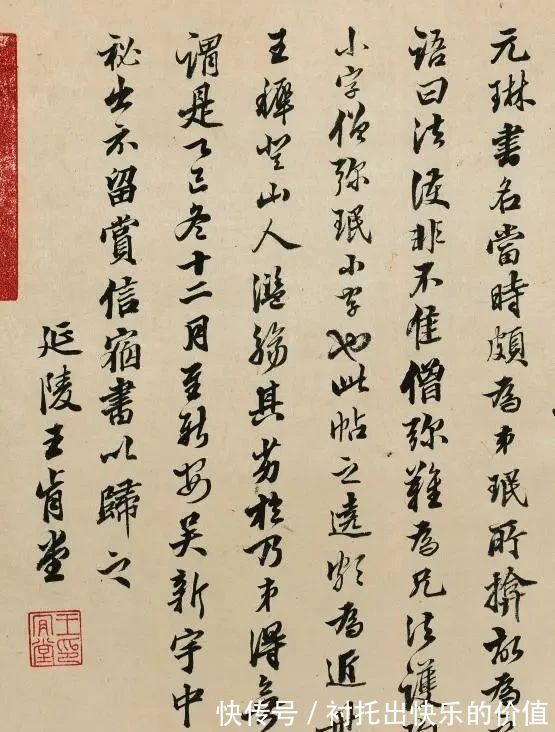 元琳書名當時頗為弟珉所揜故為
語曰法護非不佳僧彌難為兄法護珣
小字僧彌珉小字也此帖之遠頗為近世
王穉登山人濫觴其劣於乃弟得無
謂是乙巳冬十二月至新安吳新宇中
祕出示留賞信宿書以歸之
延陵王肯堂
王印肯堂
快传号/衬托出快乐的价值